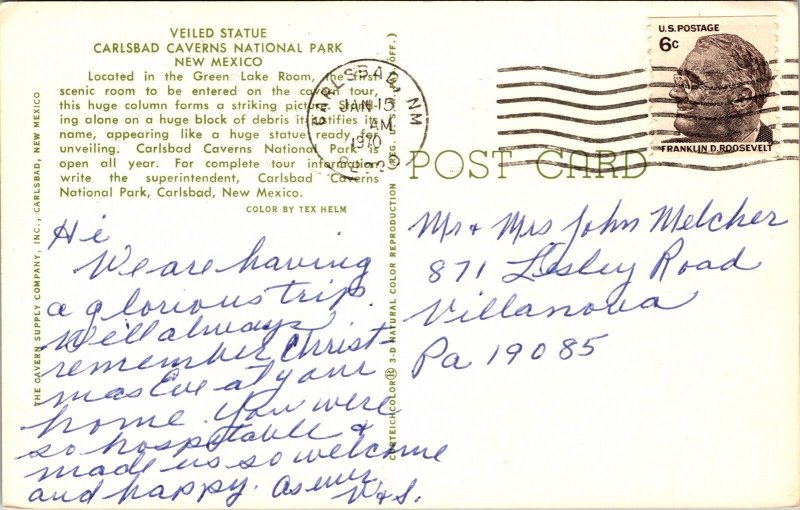 VEILED STATUE
CARLSBAD CAVERNS NATIONAL PARK
NEW MEXICO
Located in the Green Lake Room, the first
scenic room to be entered on the cavern tour,
this huge column forms a striking picture. Stand-
ing alone on a huge block of debris it justifies its
name, appearing like a huge statue ready for
unveiling. Carlsbad Caverns National Park is
open all year. For complete tour information
write the superintendent, Carlsbad Caverns
National Park, Carlsbad, New Mexico.
COLOR BY TEX HELM
THE CAVERN SUPPLY COMPANY, INC., CARLSBAD, NEW MEXICO
Hi
We are having
a glorious trip.
Will always
remember Christ-
mas Eve at your
home. You were
so hospitable &
made us so welcome
and happy. As ever
V & S.
CURTEICHCOLOR® 3-D NATURAL COLOR REPRODUCTION (REG. U.S.A. OFF.)
CARLSBAD, NM
JAN 15
AM
1970
88220
U.S. POSTAGE
6c
FRANKLIN D. ROOSEVELT
POST CARD
Mr + Mrs John Melcher
871 Lesley Road
Villanova
Pa 19085